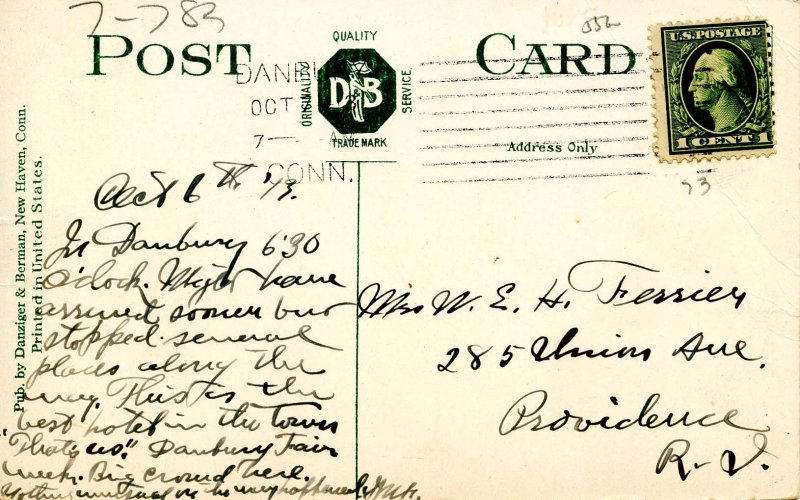 7-783
552
POST CARD
QUALITY
ORIGINALITY
D & B
SERVICE
TRADE MARK
DANBU
OCT
7— AM
CONN.
U.S. POSTAGE
1 CENT 1
Address Only
93
Pub. by Danziger & Berman, New Haven, Conn.
Printed in United States.
Oct 6th 13.
In Danbury 6:30
o'clock. Might have
arrived sooner but
stopped several
places along the
way. This is the
best hotel in the town
"That's us". Danbury Fair
week. Big crowd here.
Nothing unusual on the way happened.
Mrs W. E. H. Ferrier
285 Union Ave.
Providence
R. I.